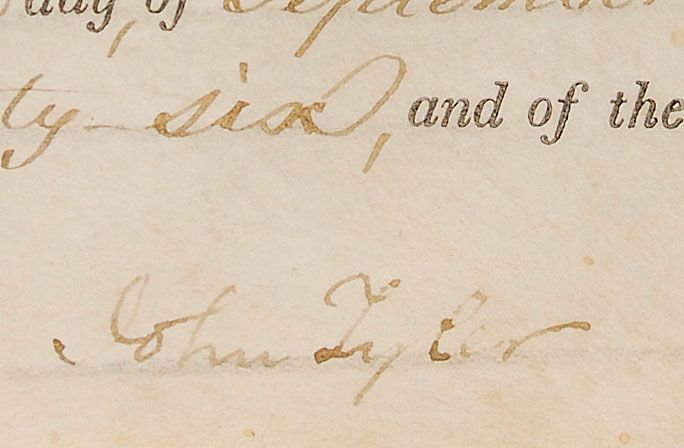 day of September
ty six, and of the
John Tyler